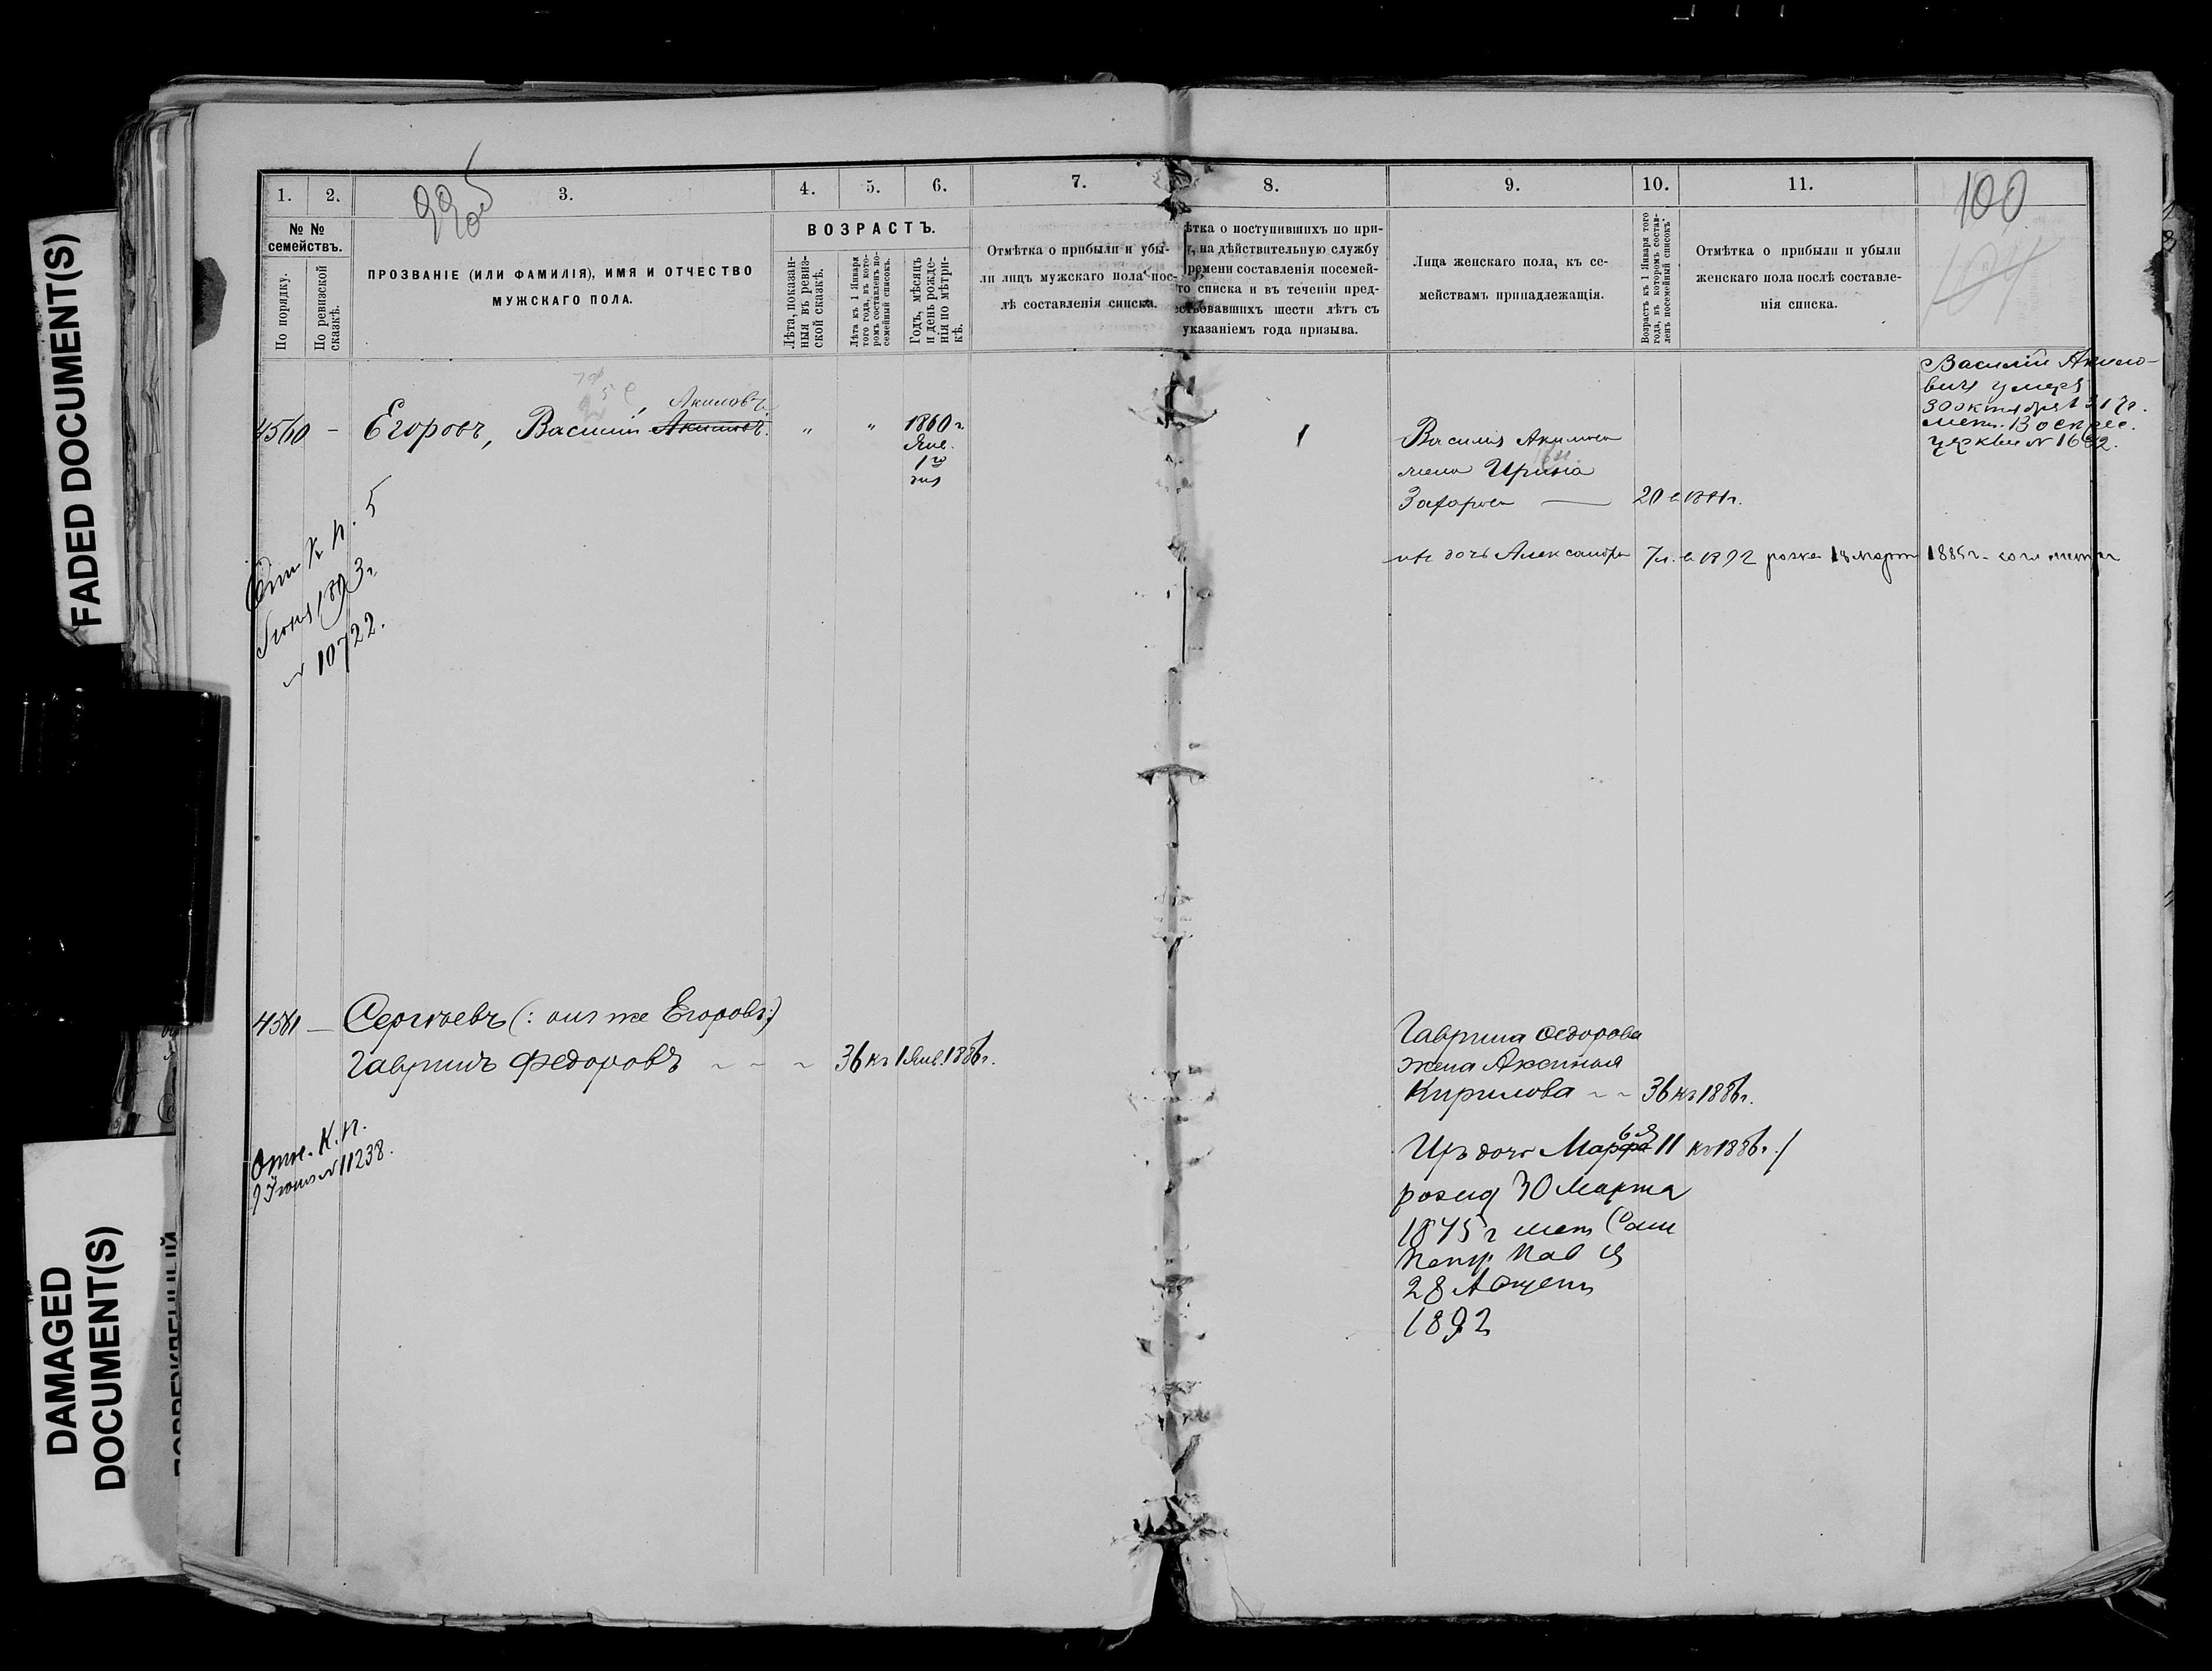 FADED DOCUMENT(S)
DAMAGED
DOCUMENT(S)
1.
2.
3.
4.
5.
6.
7.
8.
9.
10.
11.
100
104
№ №
семействъ.
По порядку.
По ревизской
сказкѣ.
ПРОЗВАНІЕ (ИЛИ ФАМИЛІЯ), ИМЯ И ОТЧЕСТВО
МУЖСКАГО ПОЛА.
ВОЗРАСТЪ.
Лѣта, показан-
ныя въ ревиз-
ской сказкѣ.
Лѣта къ 1 Января
того года, въ кото-
ромъ составленъ по-
семейный списокъ.
Годъ, мѣсяцъ
и день рожде-
нія по метри-
кѣ.
Отмѣтка о прибыли и убы-
ли лицъ мужскаго пола пос-
лѣ составленія списка.
ѣтка о поступившихъ по при-
на дѣйствительную службу
ремени составленія посемей-
го списка и въ теченіи пред-
ствовавшихъ шести лѣтъ съ
указаніемъ года призыва.
Лица женскаго пола, къ се-
мействамъ принадлежащія.
Возрастъ къ 1 Января того
года, въ которомъ состав-
ленъ посемейный списокъ.
Отмѣтка о прибыли и убыли
женскаго пола послѣ составле-
нія списка.
4560 — Егоровъ, Василій Акимовъ.
Акиловъ
„ „ 1860 г.
Янв.
1го
дня
1
Василія Акимова
жена Ирина
Захарова — 20 в 1881г.
ихъ дочь Александра 7 л. в 1892 рожд 18 март 1885 г.
Василій Акимо-
вичъ умеръ
30 октября
метр. Воскрес.
церкви N
К. П. 5
Іюня 1893 г.
N 10722.
4561 — Сергѣевъ (: онъ же Егоровъ:)
Гавріилъ Федоровъ — — — 36 къ 1 Янв. 1886 г.
Гавріила Федорова
жена Аксинья
Кирилова — — 36 къ 1886 г.
Ихъ дочь Марфа 11 къ 1886 г.
рожд 30 Марта
1875 г мет
Петр Пав
28 Август
1892
Отв. К. П.
9 Іюня N 11238.